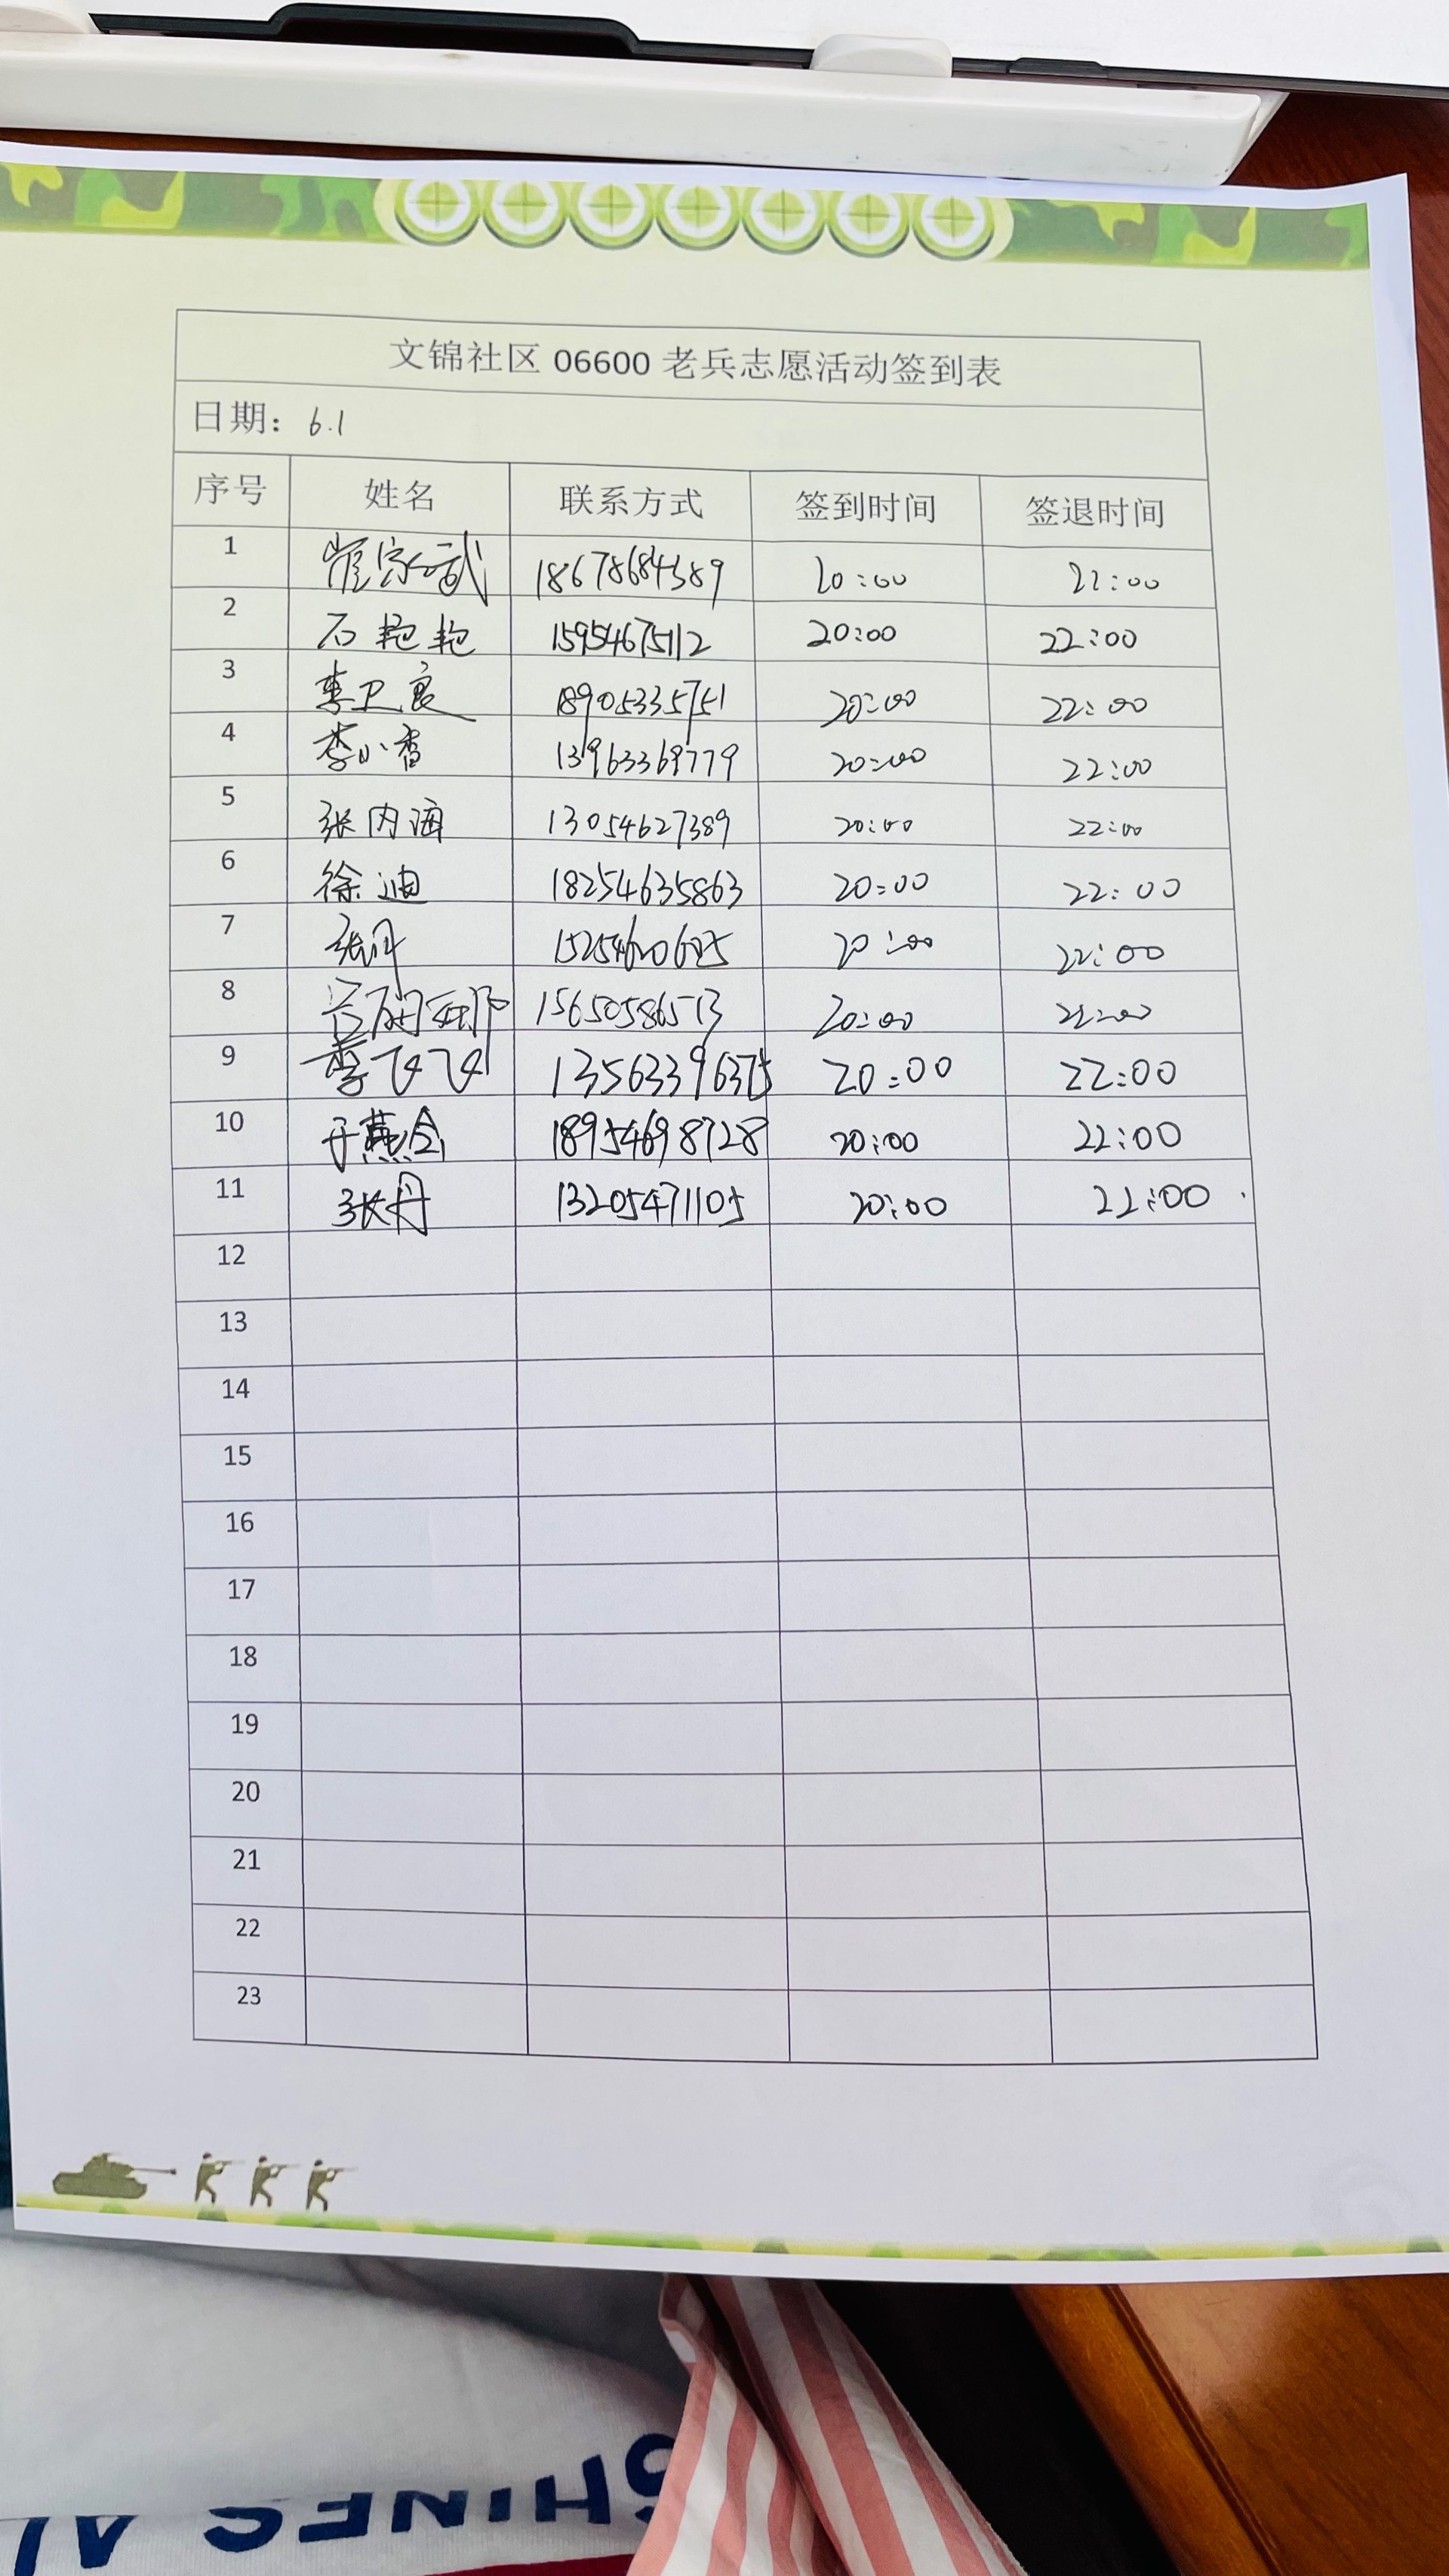 文锦社区 06600 老兵志愿活动签到表
日期： 6.1
序号 姓名 联系方式 签到时间 签退时间
1 崔宗武 18678684389 20:00 22:00
2 石艳艳 15954675112 20:00 22:00
3 李卫良 18905335751 20:00 22:00
4 李小香 13963369779 20:00 22:00
5 张内海 13054627389 20:00 22:00
6 徐迪 18254635863 20:00 22:00
7 张丹 20:00 22:00
8 15650586513 20:00 22:00
9 李飞飞 13563396375 20:00 22:00
10 于燕 18954698728 20:00 22:00
11 张丹 13205471105 20:00 22:00
12
13
14
15
16
17
18
19
20
21
22
23
SHINES